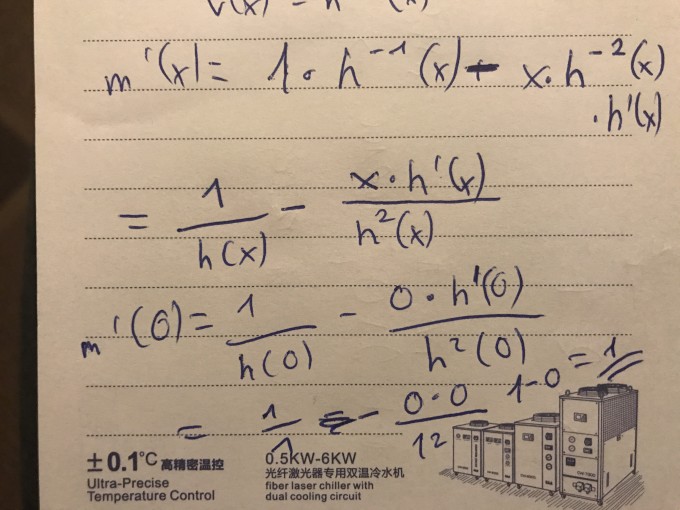 v(x) = h (x)
m'(x) = 1 · h⁻¹(x) - x·h⁻²(x)
·h'(x)
= 1/h(x) - x·h'(x)/h²(x)
m'(0) = 1/h(0) - 0·h'(0)/h²(0)
= 1/1 - 0·0/1² 1-0 = 1
±0.1°C 高精密温控
Ultra-Precise
Temperature Control
0.5KW-6KW
光纤激光器专用双温冷水机
fiber laser chiller with
dual cooling circuit